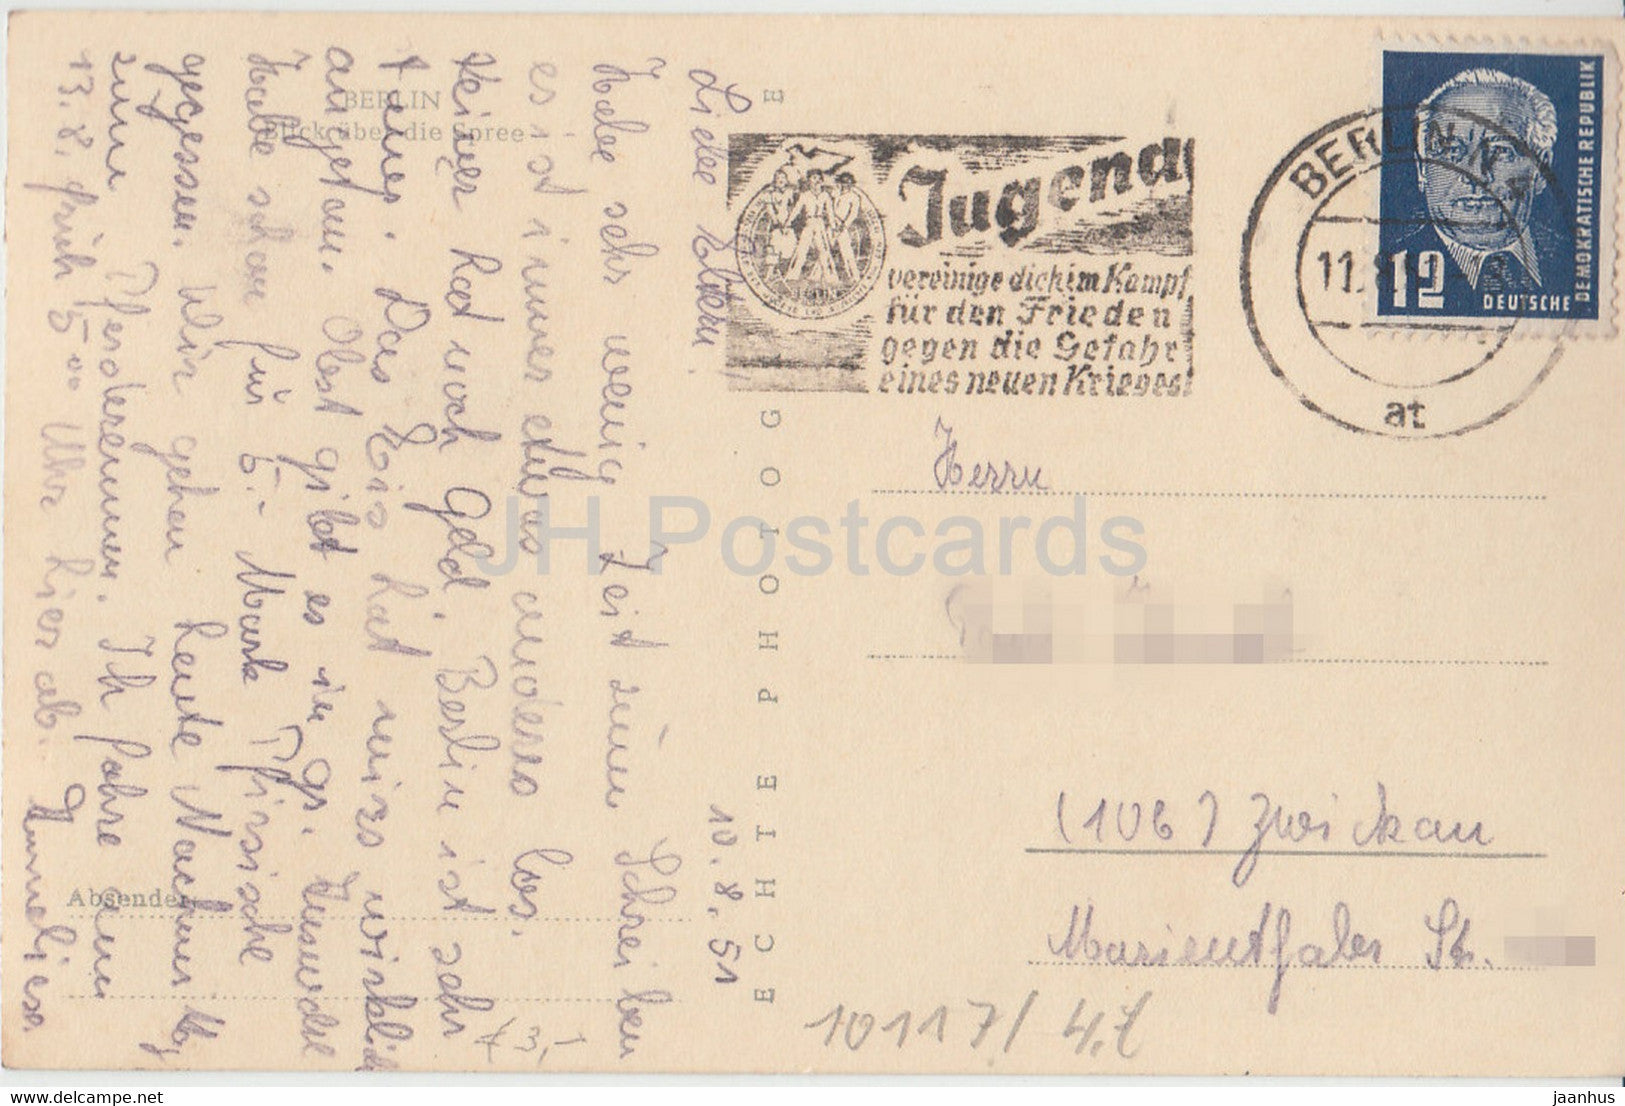 BERLIN
Blick über die Spree
Liebe Eltern!
10.8.51
Habe sehr wenig Zeit zum Schreiben
es ist immer etwas anderes los.
Keiner Rad noch Geld. Berlin ist sehr
teuer. Das Eis hat mirs wirklich
angetan. Obst gibt es in gr. Auswahl
Habe schon für 5.- Mark Pfirsische
gegessen. Wir gehen heute Nachm.
zum Pferderennen. Ich fahre am
13.8. früh 5⁰⁰ Uhr hier ab. Annelies.
Absender
ECHTE PHOTOGR
Jugend
vereinige dich im Kampf
für den Frieden
gegen die Gefahr
eines neuen Krieges!
BERLIN N 4
11.8.51
at
12
DEUTSCHE
DEMOKRATISCHE REPUBLIK
Herrn
(10b) Zwickau
Marienthaler Str.
10117/4.7
JH Postcards
http://www.delcampe.net
jaanhus